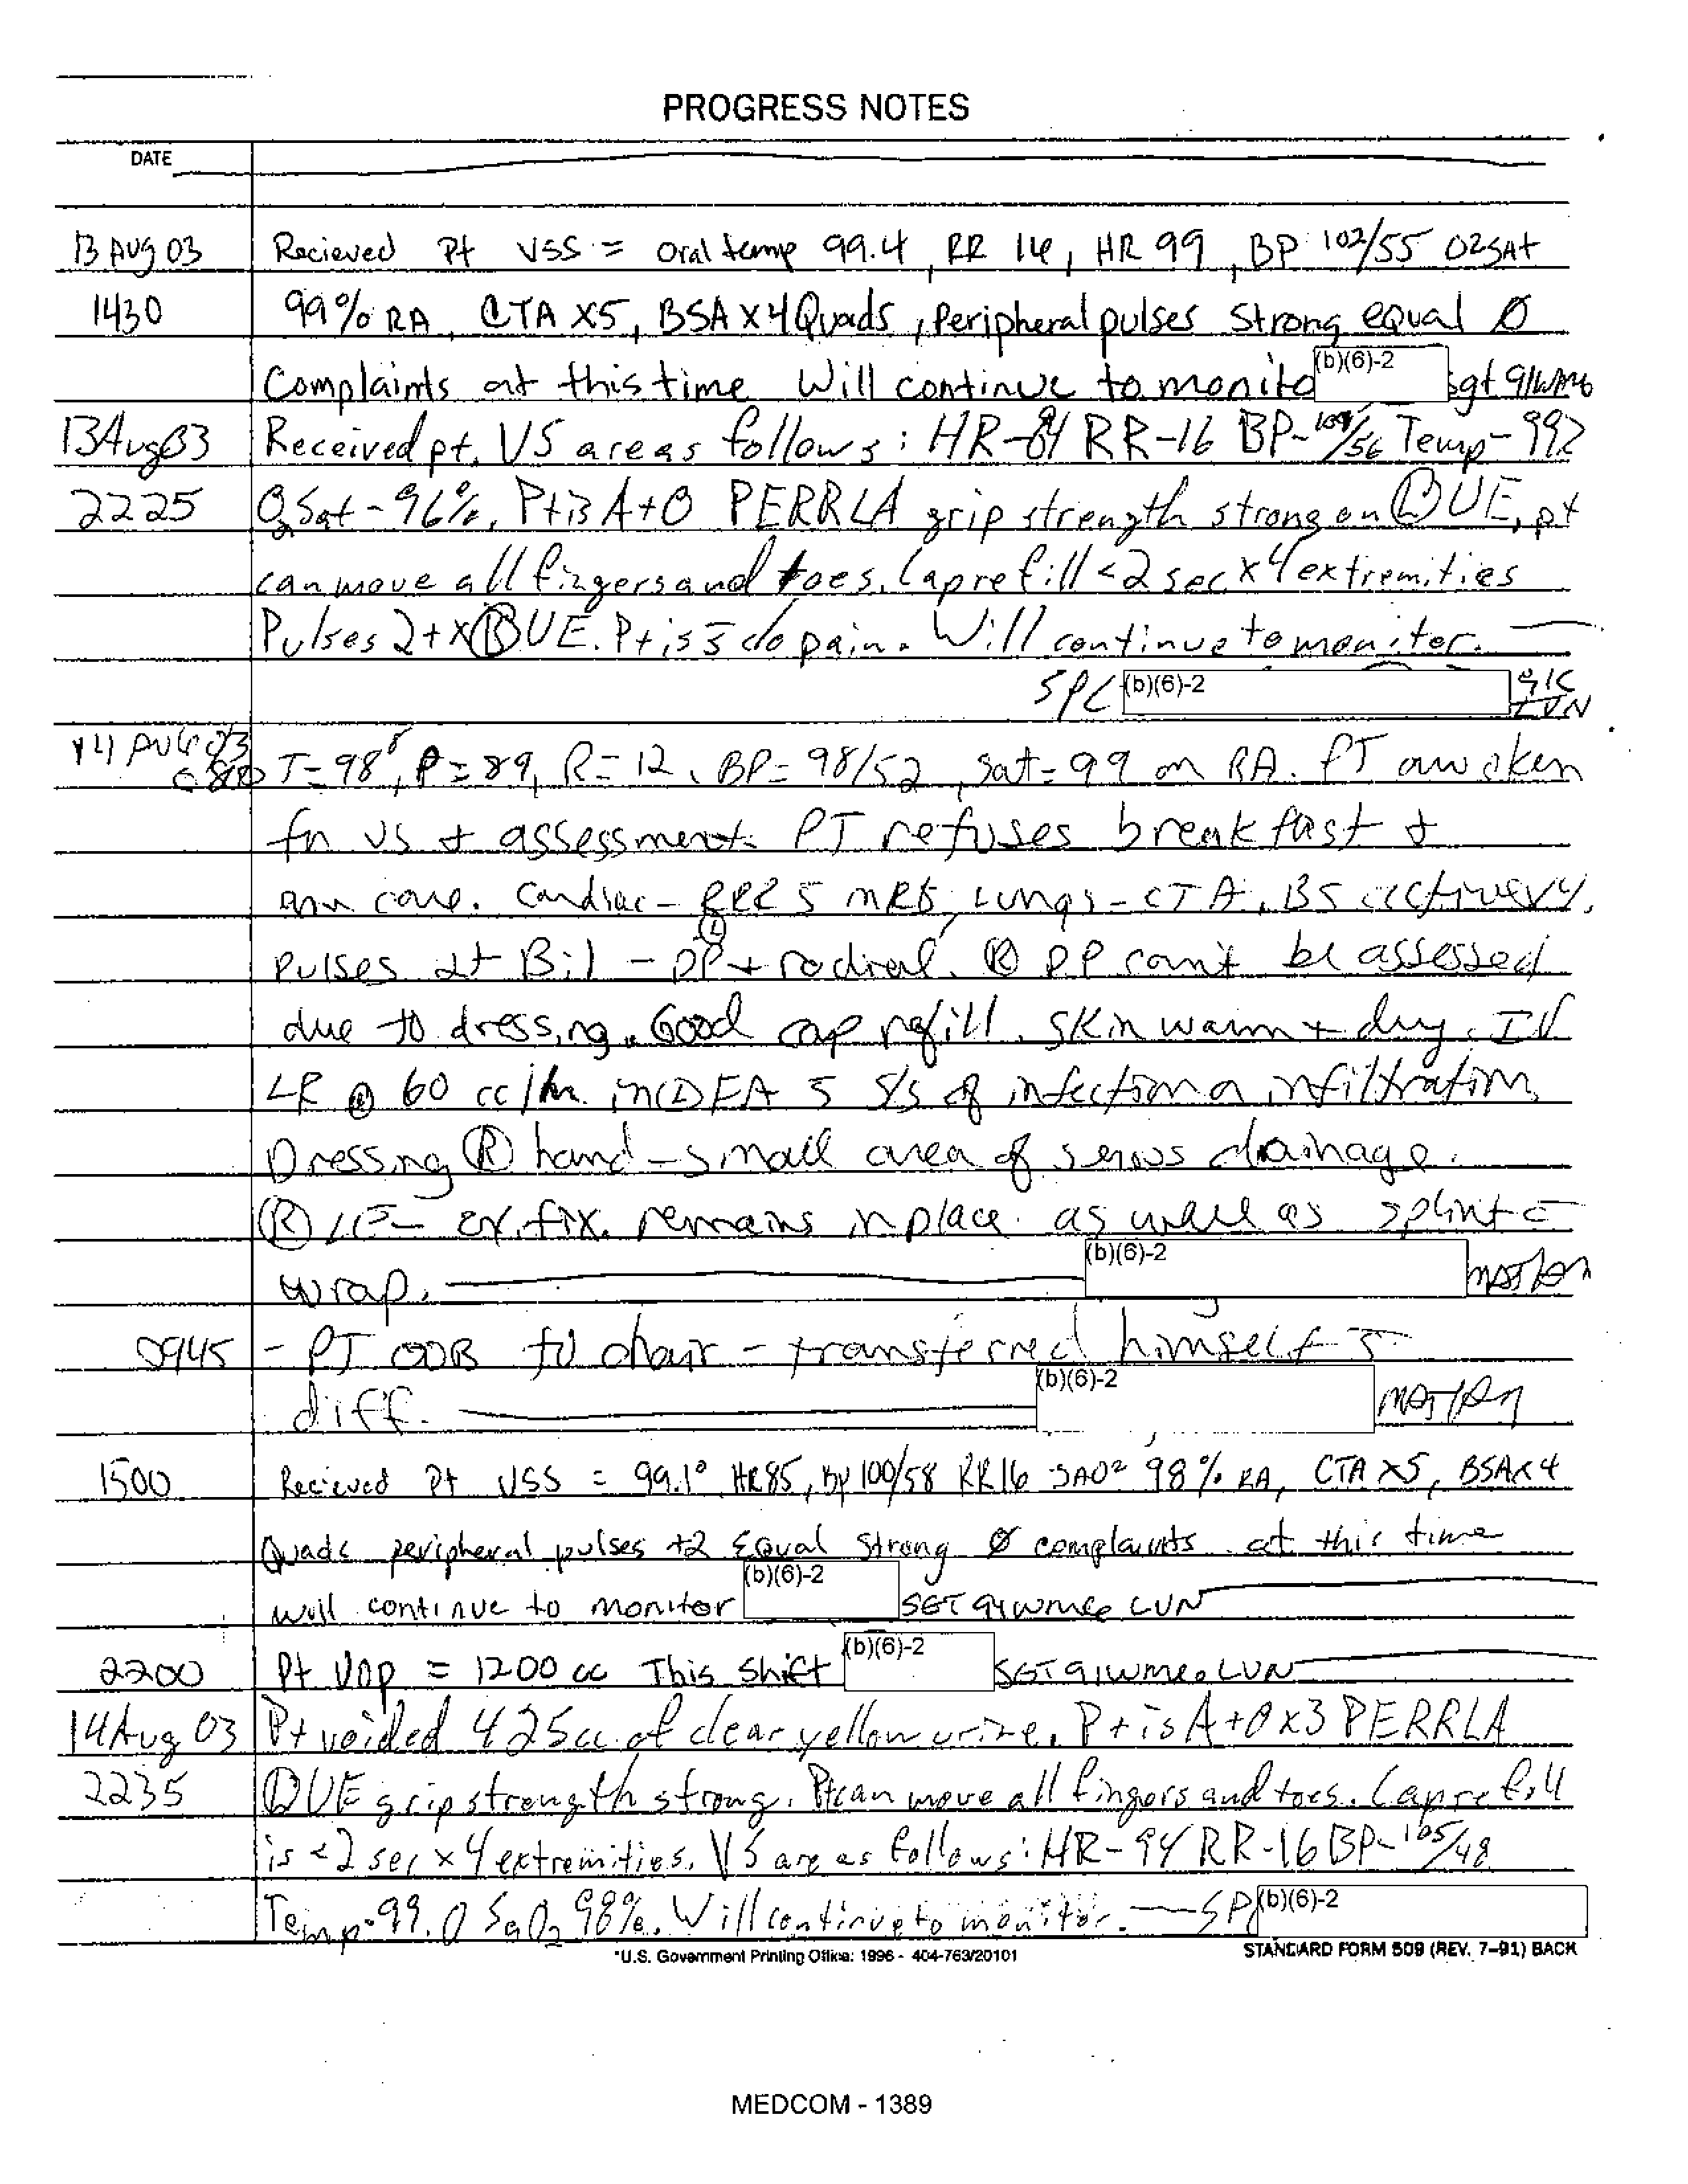 PROGRESS NOTES
DATE
13 AUG 03 Recieved Pt VSS = Oral temp 99.4, RR 14, HR 99, BP 102/55 O2SAT
1430 99% RA, CTA X5, BSA X 4 Quads, Peripheral pulses Strong equal Ø
Complaints at this time Will continue to monito (b)(6)-2 Sgt 91WM6
13Aug03 Received pt. VS are as follows: HR-84 RR-16 BP-109/56 Temp-992
2225 O2Sat-96%. Pt is A+O PERRLA grip strength strong on Ⓛ UE, pt
can move all fingers and toes. Cap refill <2 sec x 4 extremities
Pulses 2+ x Ⓑ UE. Pt is s̄ c/o pain. Will continue to monitor.
SPC (b)(6)-2 91C LVN
14 AUG 03
0800 T=98⁸, P=89, R=12, BP=98/52, Sat=99 on RA. PT awoken
for VS + assessment. PT refuses breakfast +
am care. Cardiac - RRR s̄ MRG, Lungs - CTA, BS actively,
pulses 2+ Bil - Ⓛ DP + radial. Ⓡ DP can't be assessed
due to dressing. Good cap refill. Skin warm + dry. IV
LR @ 60 cc/hr. in Ⓛ FA s̄ S/S of infection or infiltration.
Dressing Ⓡ hand - small area of serous drainage.
Ⓡ LE - ex. fix. remains in place. as well as splint c̄
wrap. (b)(6)-2
0945 - PT OOB to chair - transferred himself s̄
diff. (b)(6)-2
1500 Recieved Pt VSS = 99.1° HR85, BP 100/58 RR16 SAO² 98% RA, CTA X5, BSAX4
Quads peripheral pulses +2 Equal Strong Ø complaints at this time
will continue to monitor (b)(6)-2 SGT 91WM6 LVN
2200 Pt UOP = 1200 cc This Shift (b)(6)-2 SGT 91WM6 LVN
14Aug 03 Pt voided 425cc of clear yellow urine. Pt is A+O x3 PERRLA
2235 Ⓛ UE grip strength strong. Pt can move all fingers and toes. Cap refill
is <2 sec x 4 extremities. VS are as follows: HR-94 RR-16 BP-105/48
Temp-99.0 SaO₂ 98%. Will continue to monitor. SP (b)(6)-2
*U.S. Government Printing Office: 1996 - 404-763/20101 STANDARD FORM 509 (REV. 7-91) BACK
MEDCOM - 1389